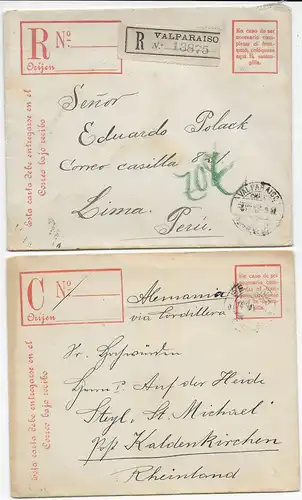 R Nº
Orijen
VALPARAISO
R
Nº 13875
En caso de ser
necesario com-
pletar el fran-
queo, colóquese
aquí la estam-
pilla.
Esta carta debe entregarse en el
Correo bajo recibo
Señor
Eduardo Polack
Correo casilla
Lima
Perú.
VALPARAISO
C Nº
Orijen
En caso de ser
necesario com-
Esta carta debe entregarse en el
Correo bajo recibo
Alemania
via Cordillera
Sr. Hochwürden
Herrn P. Auf der Heide
Steyl, St. Michael
Post Kaldenkirchen
Rheinland